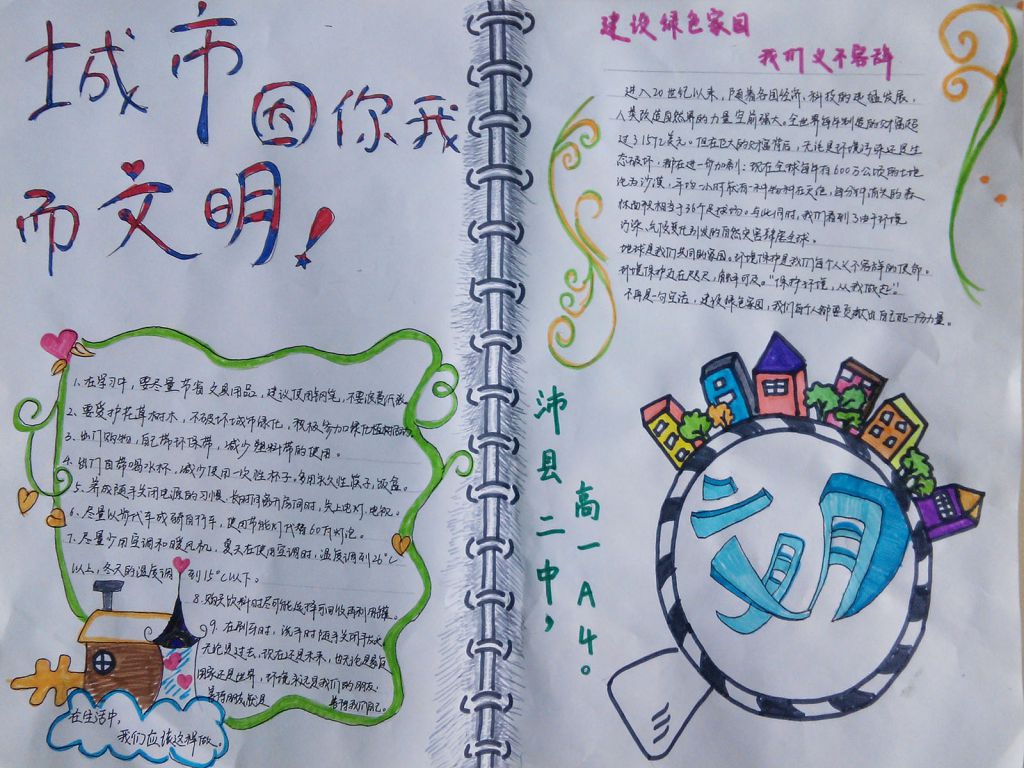 城市因你我
而文明!
1、在学习中,要尽量节省文具用品,建议使用钢笔,不要浪费纸张
2、要爱护花草树木,不破坏城市绿化,积极参加绿化植树活动
3、出门购物,自己带环保带,减少塑料带的使用。
4、出门自带喝水杯,减少使用一次性杯子,多用永久性筷子,饭盒。
5、养成随手关闭电源的习惯,长时间离开房间时,关上电灯、电视。
6、尽量以步代车或骑自行车,使用节能灯代替60万灯泡。
7、尽量少用空调和暖风机,夏天在使用空调时,温度调到26℃
以上,冬天的温度调到15℃以下。
8、购买饮料时尽可能选择可回收再利用罐。
9、在刷牙时,洗手时随手关闭
无论是过去,现在还是未来,也无论是
国家还是世界,环境永远是我们的朋友,
善待朋友就是善待我们自己。
在生活中,
我们应该这样做。
建设绿色家园
我们义不容辞
进入20世纪以来,随着各国经济、科技的迅猛发展,
人类改造自然界的力量空前强大。全世界每年制造的财富超
过了15亿美元。但在巨大的财富背后,无论是环境污染还是生
态破坏,都在进一步加剧:现在全球每年有600万公顷的土地
沦为沙漠,平均一小时就有一种物种在灭绝,每分钟消失的森
林面积相当于36个足球场。与此同时,我们看到了由于环境
污染、气候变化引发的自然灾害肆虐全球。
地球是我们共同的家园。环境保护是我们每个人义不容辞的使命。
环境保护近在咫尺,触手可及。“保护环境,从我做起”
不再是一句空话,建设绿色家园,我们每个人都要贡献出自己的一份力量。
沛县二中,
高一A4。
文明